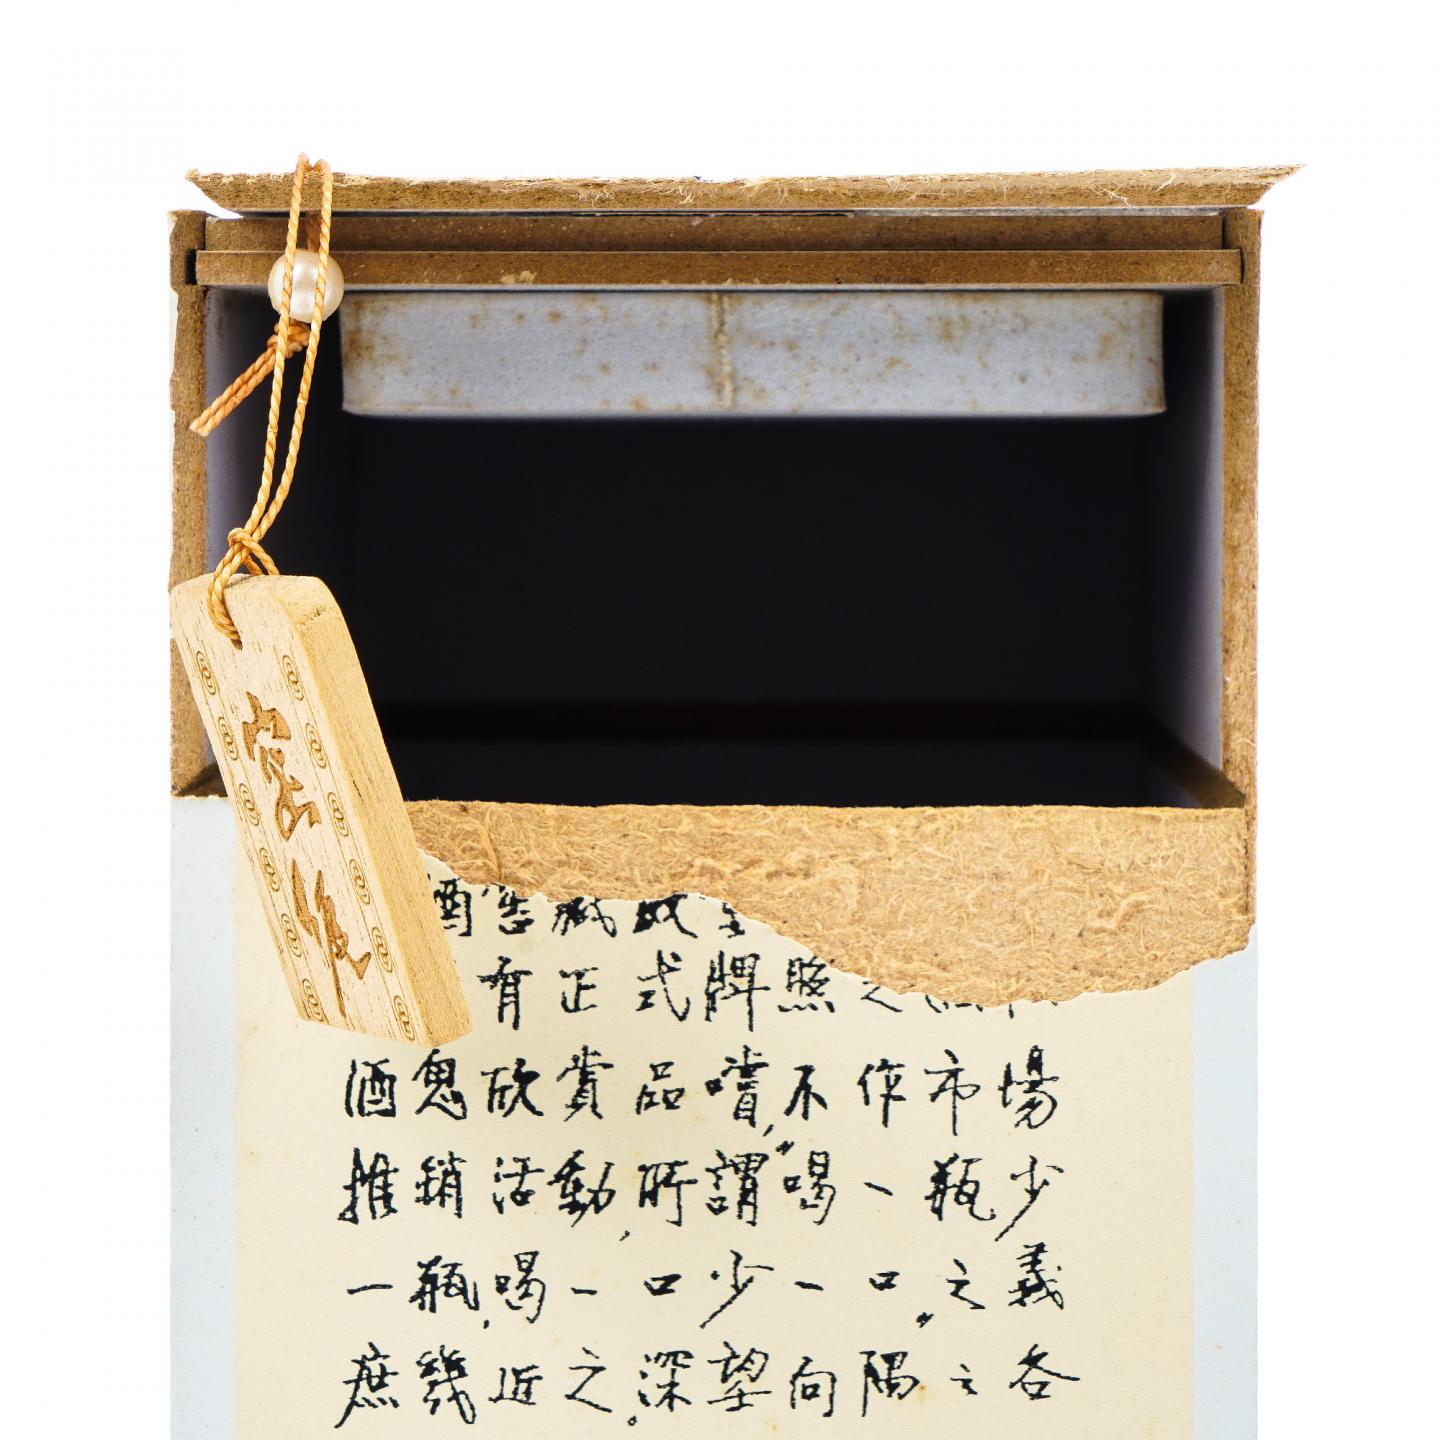 有正式牌照之
酒欣賞品嚐,不作市場
推銷活動,所謂"喝一瓶少
一瓶,喝一口少一口"之義
庶幾近之。深望向隅之各